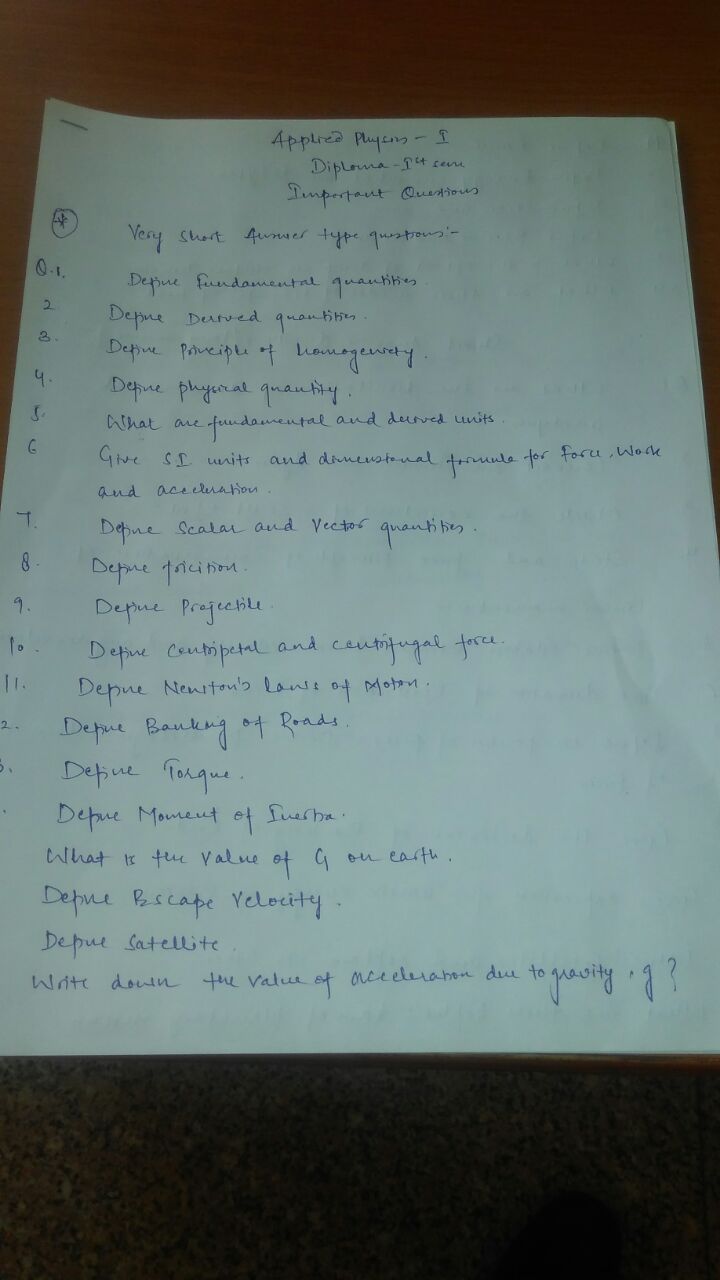 Applied Physics - I
Diploma - Ist sem
Important Questions
* Very Short Answer type questions:-
Q.1. Define Fundamental quantities.
2. Define Derived quantities.
3. Define Principle of homogeneity.
4. Define physical quantity.
5. What are fundamental and derived units.
6 Give S.I. units and dimensional formula for Force, Work
and acceleration.
7. Define Scalar and Vector quantities.
8. Define friction.
9. Define Projectile.
10. Define Centripetal and centrifugal force.
11. Define Newton's laws of Motion.
2. Define Banking of Roads.
3. Define Torque.
. Define Moment of Inertia.
What is the value of G on earth.
Define Escape Velocity.
Define Satellite.
Write down the value of acceleration due to gravity, g?